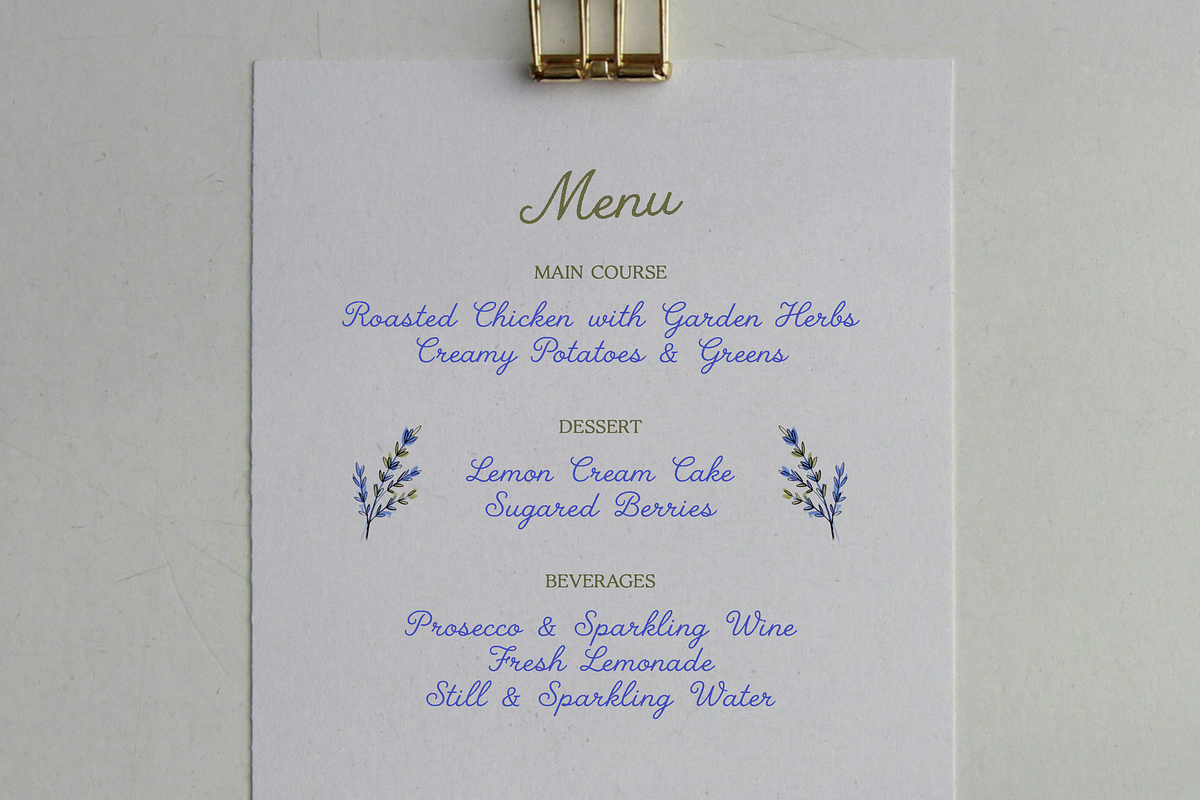 Menu
MAIN COURSE
Roasted Chicken with Garden Herbs
Creamy Potatoes & Greens
DESSERT
Lemon Cream Cake
Sugared Berries
BEVERAGES
Prosecco & Sparkling Wine
Fresh Lemonade
Still & Sparkling Water